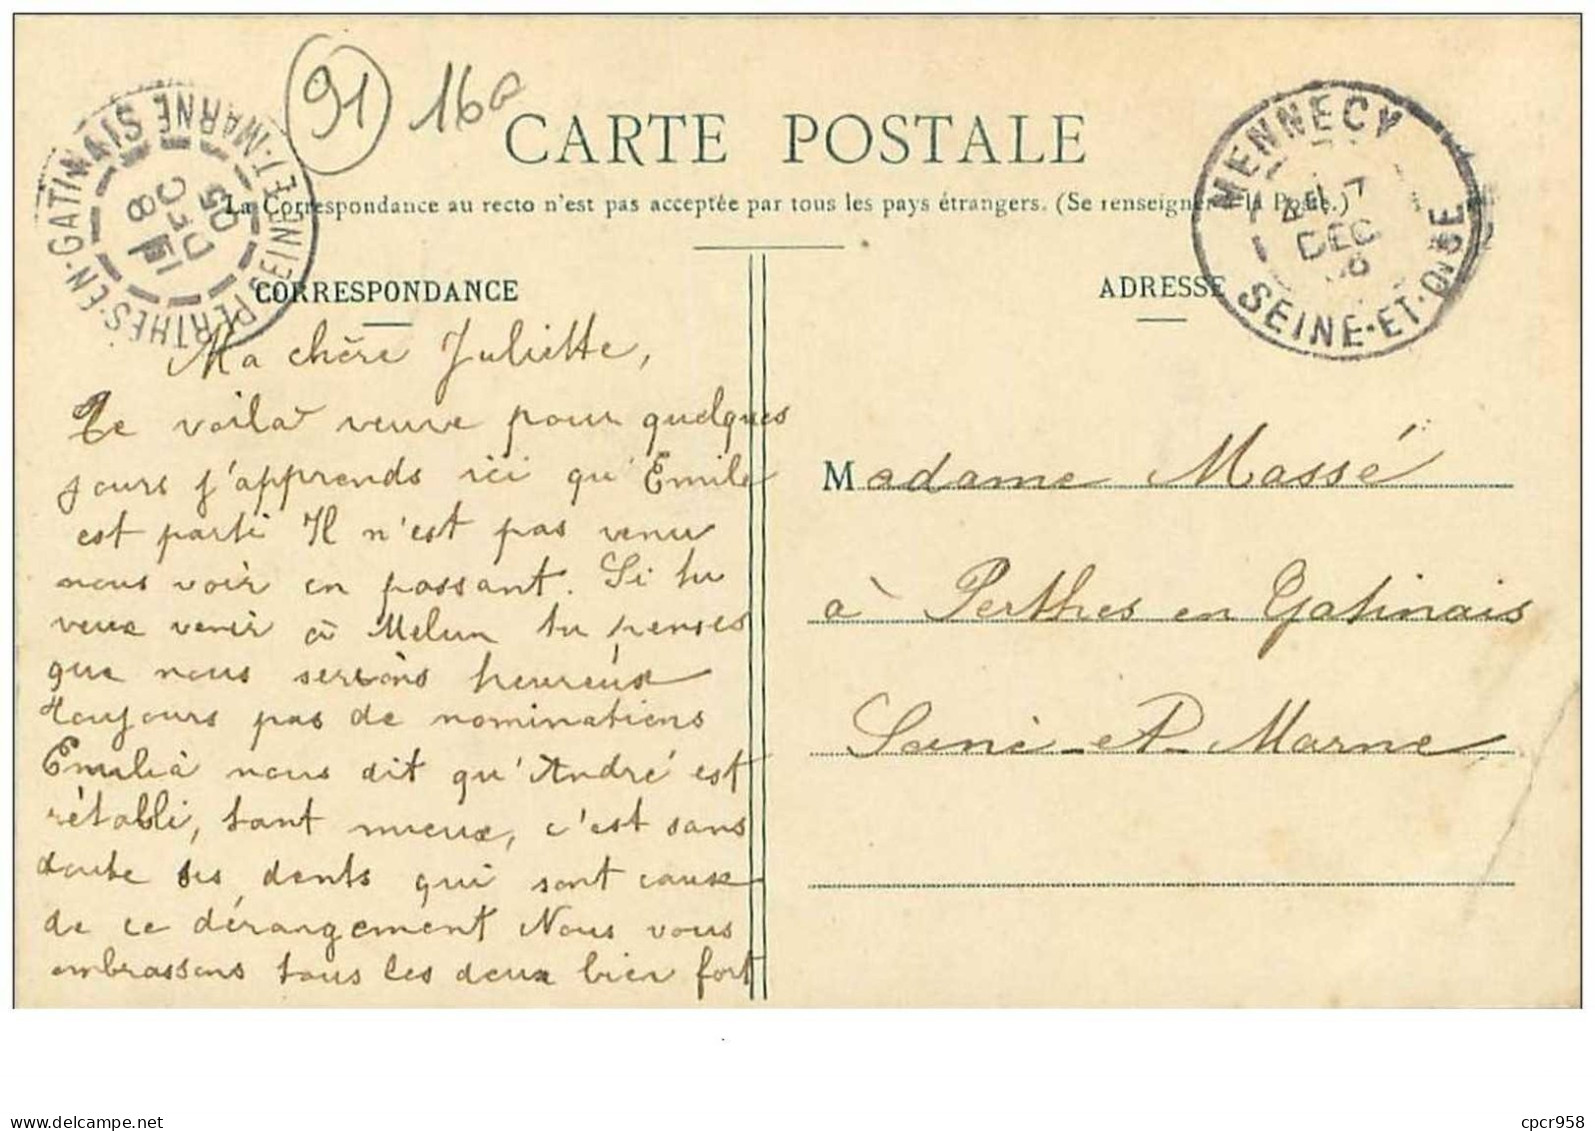 91 160
CARTE POSTALE
La Correspondance au recto n'est pas acceptée par tous les pays étrangers. (Se renseigner à la Poste.)
PERTHES-EN-GATINAIS SEINE-ET-MARNE
8 DEC 05
MENNECY
7
DEC
SEINE-ET-OISE
CORRESPONDANCE
Ma chère Juliette,
Te voila veuve pour quelques
jours j'apprends ici qu'Emile
est parti Il n'est pas venu
nous voir en passant. Si tu
veux venir à Melun tu penses
que nous serions heureux
toujours pas de nominations
Emilià nous dit qu'André est
rétabli, tant mieux, c'est sans
doute ses dents qui sont cause
de ce dérangement Nous vous
embrassons tous les deux bien fort
ADRESSE
Madame Massé
à Perthes en Gatinais
Seine-et-Marne
cpcr958